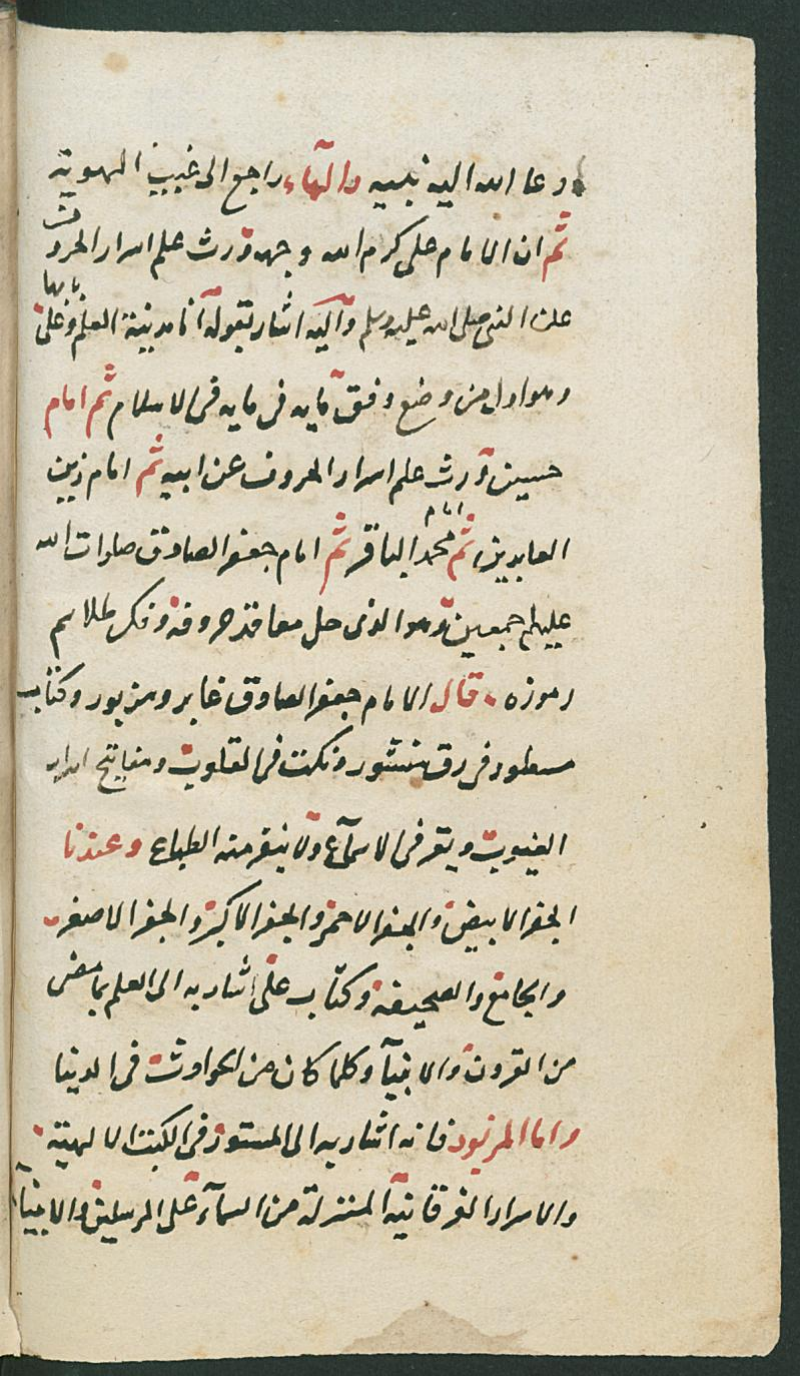 ودعا الله اليه نبيه والهاء راجع الى غيب الهوية
ثم ان الامام على كرم الله وجهه ورث علم اسرار الحروف
عن النبى صلى الله عليه وسلم واليه اشار بقوله انا مدينة العلم وعلى بابها
وهو اول من وضع وفق مايه فى مايه فى الاسلام ثم امام
حسين ورث علم اسرار الحروف عن ابيه ثم امام زين
العابدين ثم امام محمد الباقر ثم امام جعفر الصادق صلوات الله
عليهم اجمعين وهو الذى حل معاقد حروفه وفك طلاسم
رموزه قال الامام جعفر الصادق غابر ومزبور وكتاب
مسطور فى رق منشور ونكت فى القلوب ومفاتيح اسرار
الغيوب ونقر فى الاسمآع ولا ينفر منه الطباع وعندنا
الجفر الابيض والجفر الاحمر والجفر الاكبر والجفر الاصغر
والجامع والصحيفة وكتاب على اشار به الى العلم بما مضى
من القرون والانبيآ وكلما كان من الحوادث فى الدنيا
واما المزبور فانه اشار به الى المستور فى الكتب الالهية
والاسرار الفرقانية المنزلة من السمآء على المرسلين والانبيآ